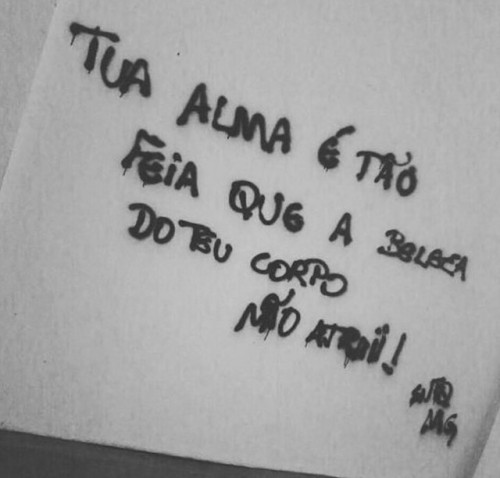 TUA ALMA É TÃO
FEIA QUE A BELEZA
DO TEU CORPO
NÃO ATRAI!
MG